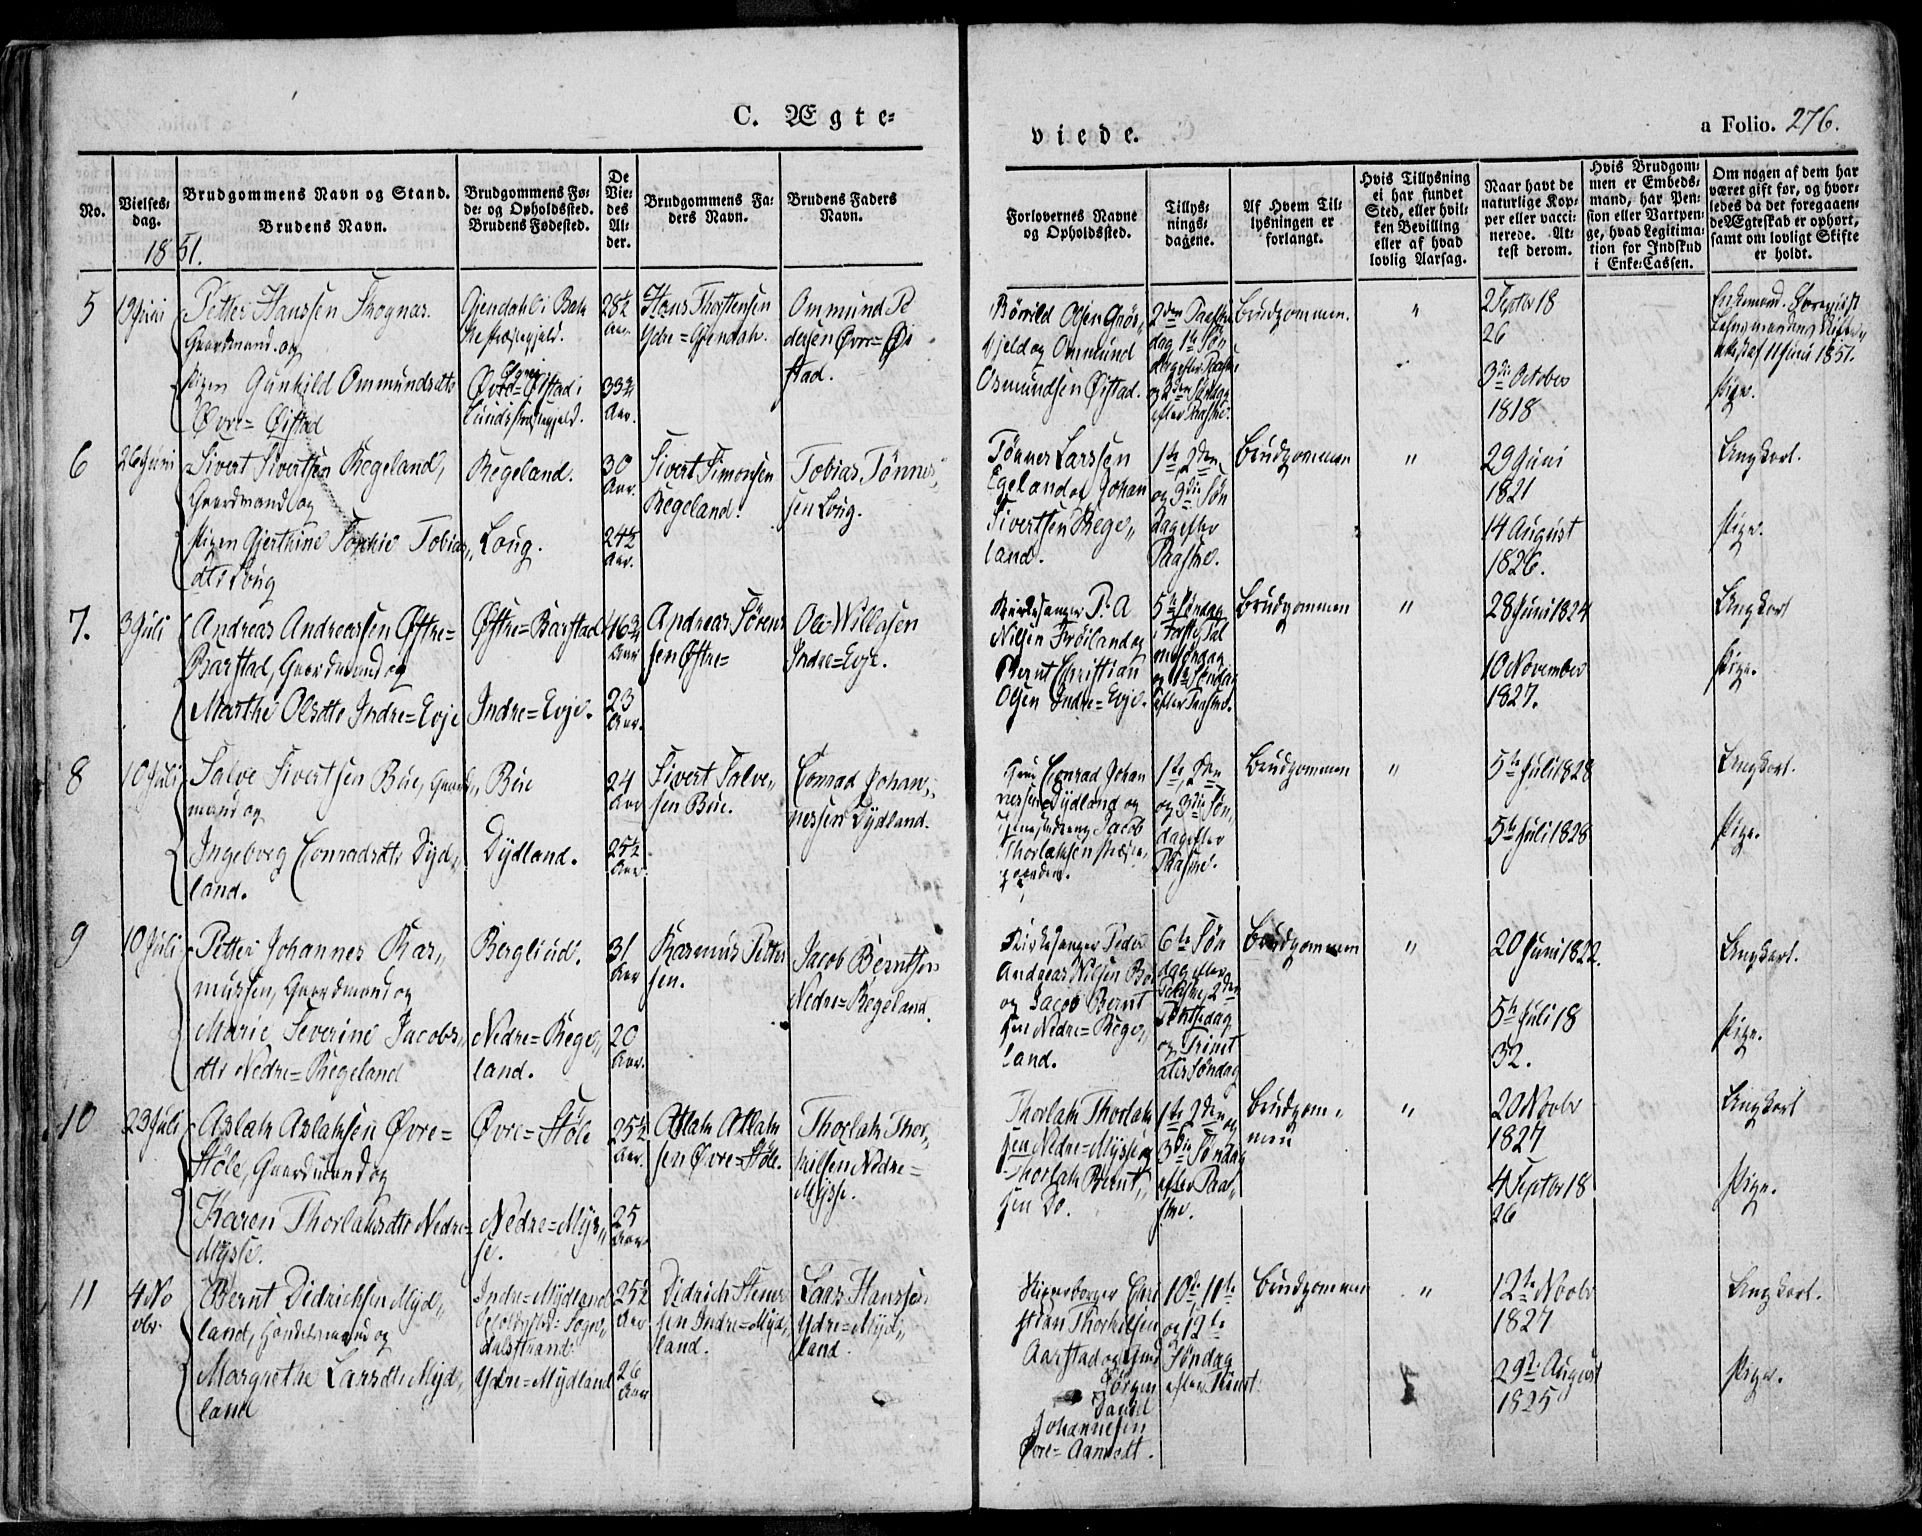 C. Ægte-
viede.
a Folio. 276.
No.
Vielses-
dag.
Brudgommens Navn og Stand.
Brudens Navn.
Brudgommens Fø-
de- og Opholdssted.
Brudens Fødested.
De
Vie-
des
Al-
der.
Brudgommens Fa-
ders Navn.
Brudens Faders
Navn.
Forlovernes Navne
og Opholdssted.
Tillys-
nings-
dagene.
Af Hvem Til-
lysningen er
forlangt.
Hvis Tillysning
ei har fundet
Sted, eller hvil-
ken Bevilling
eller af hvad
lovlig Aarsag.
Naar havt de
naturlige Kop-
per eller vacci-
nerede. At-
test derom.
Hvis Brudgom-
men er Embeds-
mand, har Pen-
sion eller Vartpen-
ge, hvad Legitima-
tion for Indskud
i Enke-Cassen.
Om nogen af dem har
været gift før, og hvor-
ledes da det foregaaen-
de Ægteskab er ophørt,
samt om lovligt Skifte
er holdt.
1851.
5
Petter Hanssen Skognas.
Gaardmand og
Pigen Gunhild Ommundsdtr
Øvre=Øistad
Gjendahl i Bak
ke Præstegjeld.
Øvre=Øistad i
Lunds Præstegjeld.
28½
Aar.
33¾
Aar.
Hans Thorstensen
Ydre=Gjendahl.
Ommund Pe
dersen Øvre=Øi
stad.
Ommund
Osmundsen Øistad.
2den Paaske
dag 1ste Søn
dag efter Paaske
og 2den Søndag
efter Paaske.
Brudgommen.
"
2 Septbr 18
26
3die October
1818
11 Juni 1851.
Pige.
6
26 Juni
Sivert Sivertsen Regeland,
Gaardmand og
Pigen Gjerthine Sophie Tobias„
dtr Loug
Regeland.
Loug.
30
Aar.
24½
Aar.
Sivert Simonsen
Regeland.
Tobias Tønnes„
sen Loug.
Tønnes Larssen
Egeland og Johan
Sivertsen Rege„
land.
1ste, 2den
og 3die Søn
dag efter
Paaske.
Brudgommen
"
29 Juni
1821
14 August
1826.
Ungkarl.
Pige.
7.
3 Juli
Andreas Andreassen Østre=
Barstad, Gaardmand og
Marthe Olsdtr Indre=Evje
Østre=Barstad
Indre=Evje.
Aar
23
Aar.
Andreas Sørens
sen Østre=
Ole Willasen
Indre=Evje.
Kirkesanger P. A
Nilsen Frøiland og
Bernt Christian
Olsen Indre=Evje.
5te Søndag
i Faste, Pal
mesøndag
og 1ste Søndag
efter Paaske.
Brudgommen
"
28 Juni 1824
10 November
1827.
Ungkarl
Pige.
8
10 Juli
Salve Sivertsen Bøe, Gaard„
mand og
Ingeborg Conradsdtr Dyd„
land.
Bøe
Dydland.
24
Aar
25½
Aar.
Sivert Salve„
sen Bøe.
Conrad Johan„
nessen Dydland.
Conrad Johan
nessen Dydland og
Jacob
Thorlaksen
1ste, 2den
og 3die Søn„
dag efter
Paaske.
Brudgommen
"
5te Juli 1828
5te Juli 1828
Ungkarl.
Pige.
9
10 Juli
Petter Johannes Ras„
mussen, Gaardmand og
Marie Severine Jacobs„
dtr Nedre=Regeland
Berglund.
Nedre=Rege„
land.
31
Aar
20
Aar.
Rasmus Petter
sen.
Jacob Berntsen
Nedre=Regeland.
Kirkesanger Peder
Andreas Nilsen Bø
og Jacob Bernt
sen Nedre=Rege„
land.
6te Søn
dag efter
Paaske, 2den
Pintsedag
og Trinit
atis Søndag
Brudgommen
"
20 Juni 1822.
5te Juli 18
32.
Ungkarl.
Pige.
10
23 Juli
Aslak Aslaksen Øvre=
Støle, Gaardmand og
Karen Thorlaksdtr Nedre=
Mysse.
Øvre=Støle
Nedre=Mys„
se.
25½
Aar.
25
Aar
Aslak Aslak
sen Øvre=Støle.
Thorlak Thor„
kilsen Nedre=
Mysse.
Thorlak Thorlak
sen Nedre=Mysse og
Thorlak Bernt„
sen Do.
1ste 2den og
3die Søndag
efter Paa„
ske.
Brudgom„
men
"
20 Novbr
1827
4 Septbr 18
26
Ungkarl
Pige.
11
4 No
vbr.
Bernt Didrichsen Myd„
land, Handelsmand og
Margrethe Larsdtr Myd„
land
Indre=Mydland
Opholdssted: Sogn„
dalsstrand
Ydre=Mydland
25½
Aar
26
Aar
Didrich Stens
sen Indre=Myd„
land.
Lars Hanssen
Ydre=Myd„
land.
Chri
stian Thorkilsen
Aarstad og
Jørgen
Daniel
Johannesen
Øvre=Aamodt.
10de, 11te
og 12te
Søndag
efter Trinit.
Brudgommen
"
12te Novbr
1827
29de August
1825
Ungkarl.
Pige.